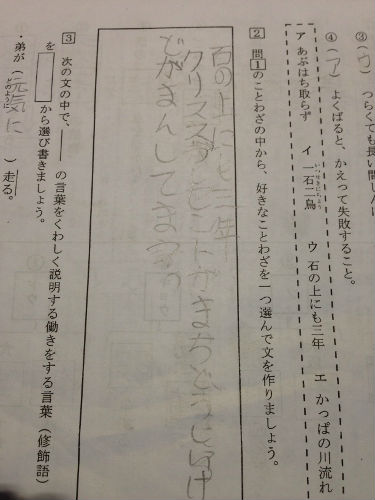 ③(ウ) つらくても長い間しん
④(ア) よくばると、かえって失敗すること。
ア あぶはち取らず イ 一石二鳥 ウ 石の上にも三年 エ かっぱの川流れ
いっせきにちょう
2 問1のことわざの中から、好きなことわざを一つ選んで文を作りましょう。
石の上にも三年
クリスマスプレゼントがまちどうしいけ
どがまんしてまつ
3 次の文の中で、――の言葉をくわしく説明する働きをする言葉(修飾語)
を から選び書きましょう。
・弟が(元気に)走る。
どのように